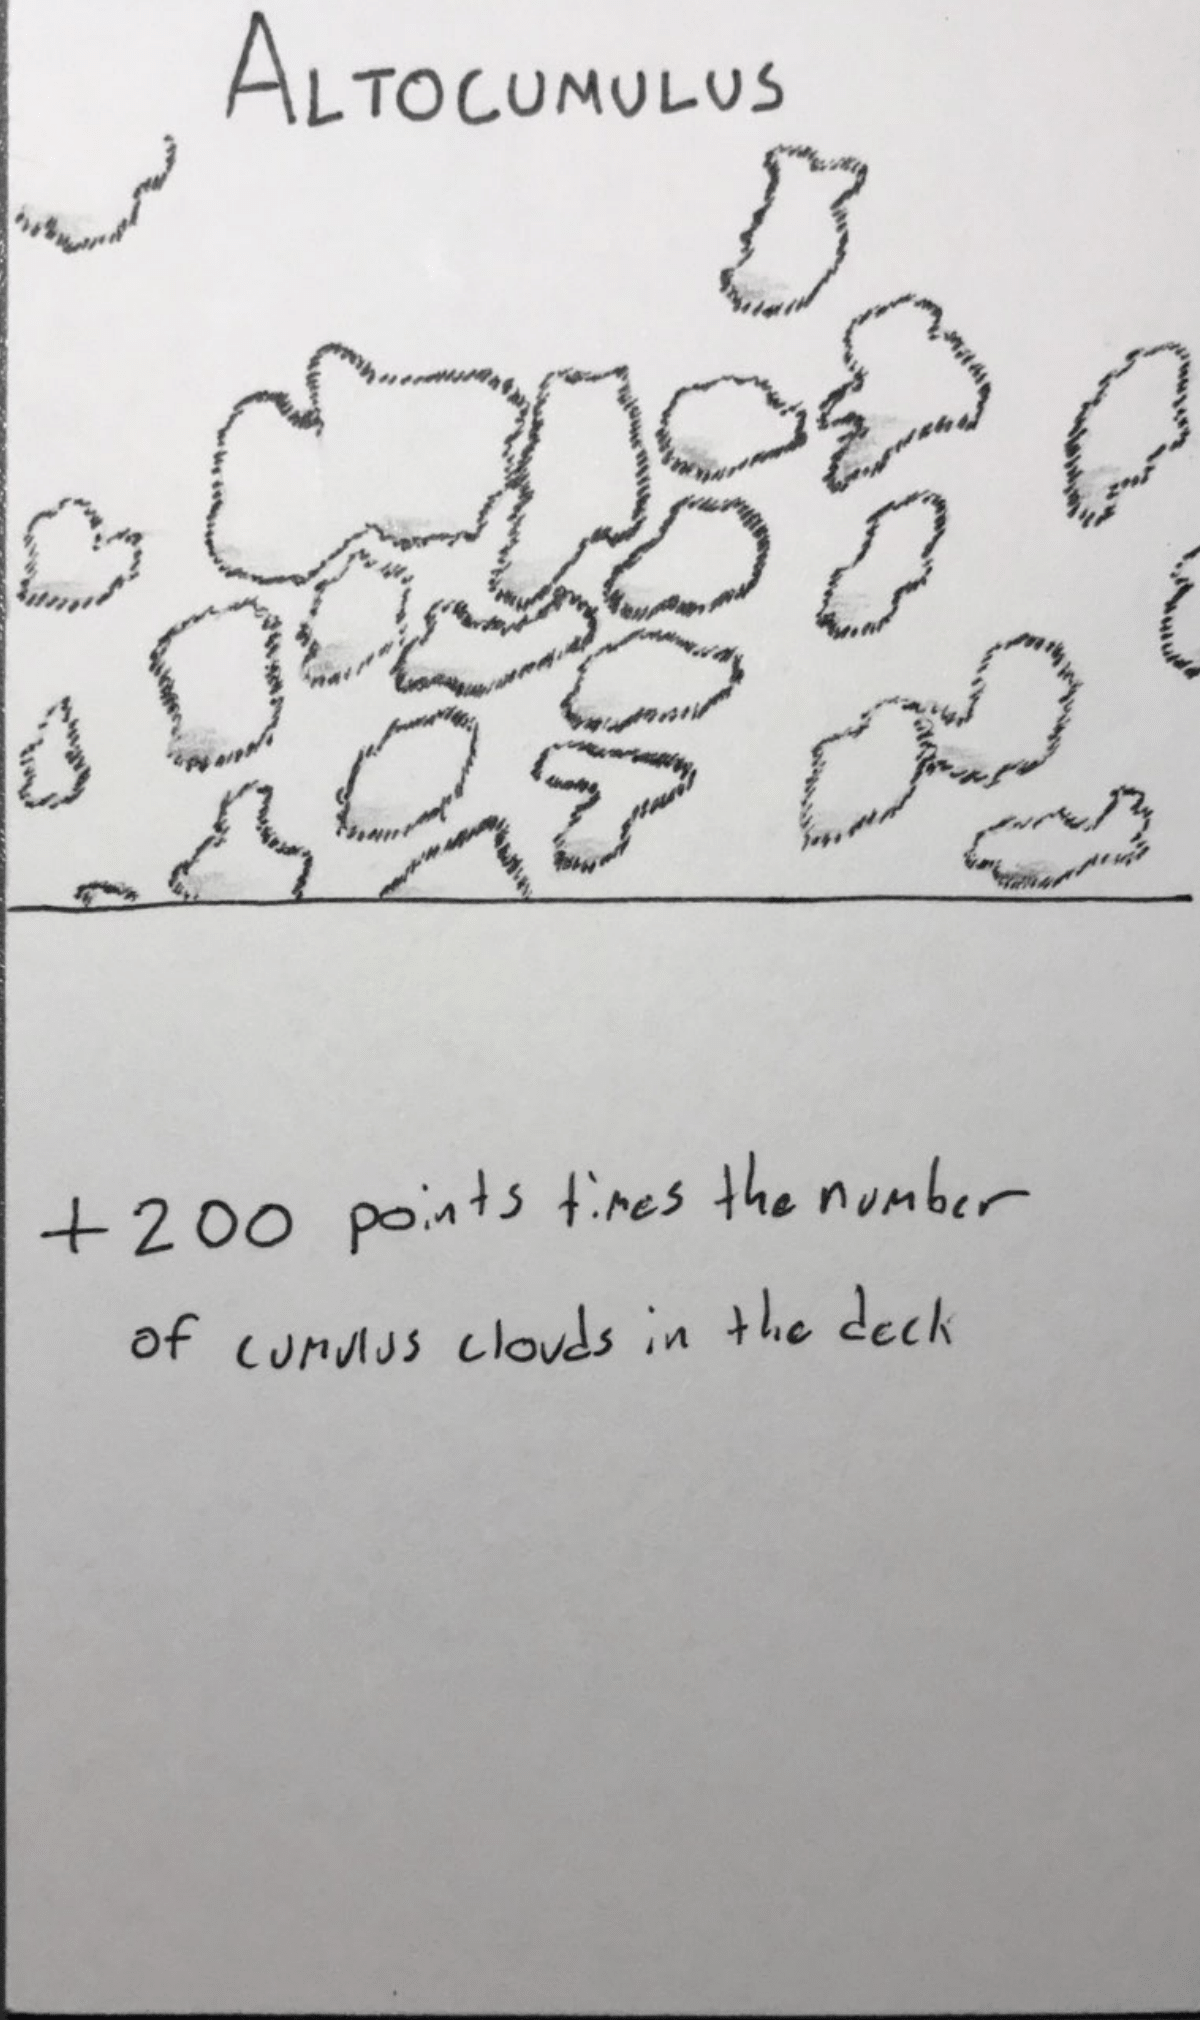 ALTOCUMULUS
+200 points times the number
of cumulus clouds in the deck